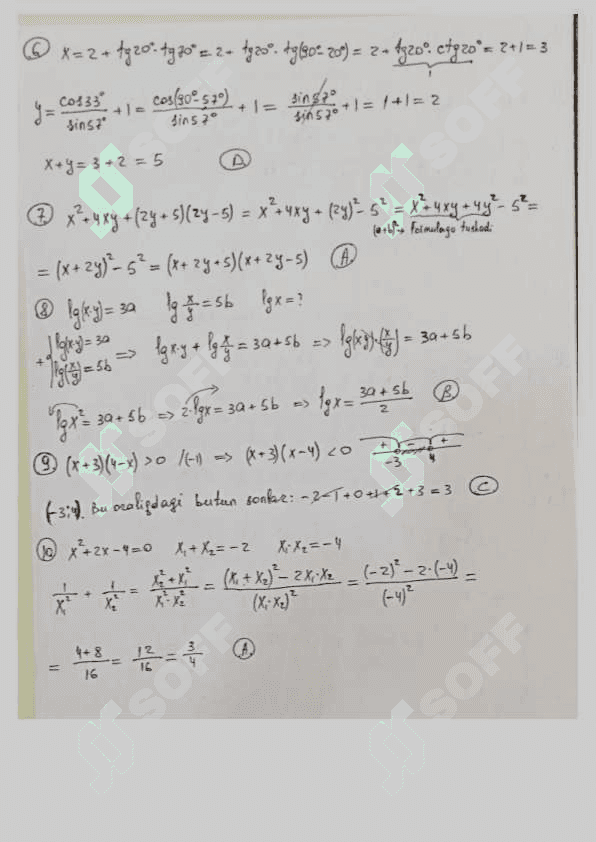 6 x = 2 + tg20° · tg70° = 2 + tg20° · tg(90° - 20°) = 2 + tg20° · ctg20° = 2 + 1 = 3
1
y = cos33°/sin57° + 1 = cos(90° - 57°)/sin57° + 1 = sin57°/sin57° + 1 = 1 + 1 = 2
x + y = 3 + 2 = 5 D
7. x² + 4xy + (2y + 5)(2y - 5) = x² + 4xy + (2y)² - 5² = x² + 4xy + 4y² - 5² =
(a+b)² Formulaga tushadi
= (x + 2y)² - 5² = (x + 2y + 5)(x + 2y - 5) A.
8 lg(x·y) = 3a lg x/y = 5b lgx = ?
+ { lg(x·y) = 3a
lg(x/y) = 5b => lg x·y + lg x/y = 3a + 5b => lg(xy)·(x/y) = 3a + 5b
lgx² = 3a + 5b => 2·lgx = 3a + 5b => lgx = (3a + 5b)/2 B
9 (x+3)(4-x) > 0 /(-1) => (x+3)(x-4) < 0 + - + -3 4
(-3;4). Bu oraliqdagi butun sonlar: -2 -1 + 0 + 1 + 2 + 3 = 3 C
10. x² + 2x - 4 = 0 x₁ + x₂ = -2 x₁·x₂ = -4
1/x₁² + 1/x₂² = (x₂² + x₁²)/(x₁²·x₂²) = ((x₁ + x₂)² - 2x₁·x₂)/(x₁·x₂)² = ((-2)² - 2·(-4))/(-4)² =
= (4+8)/16 = 12/16 = 3/4 A.
SOFF
SOFF
SOFF
SOFF